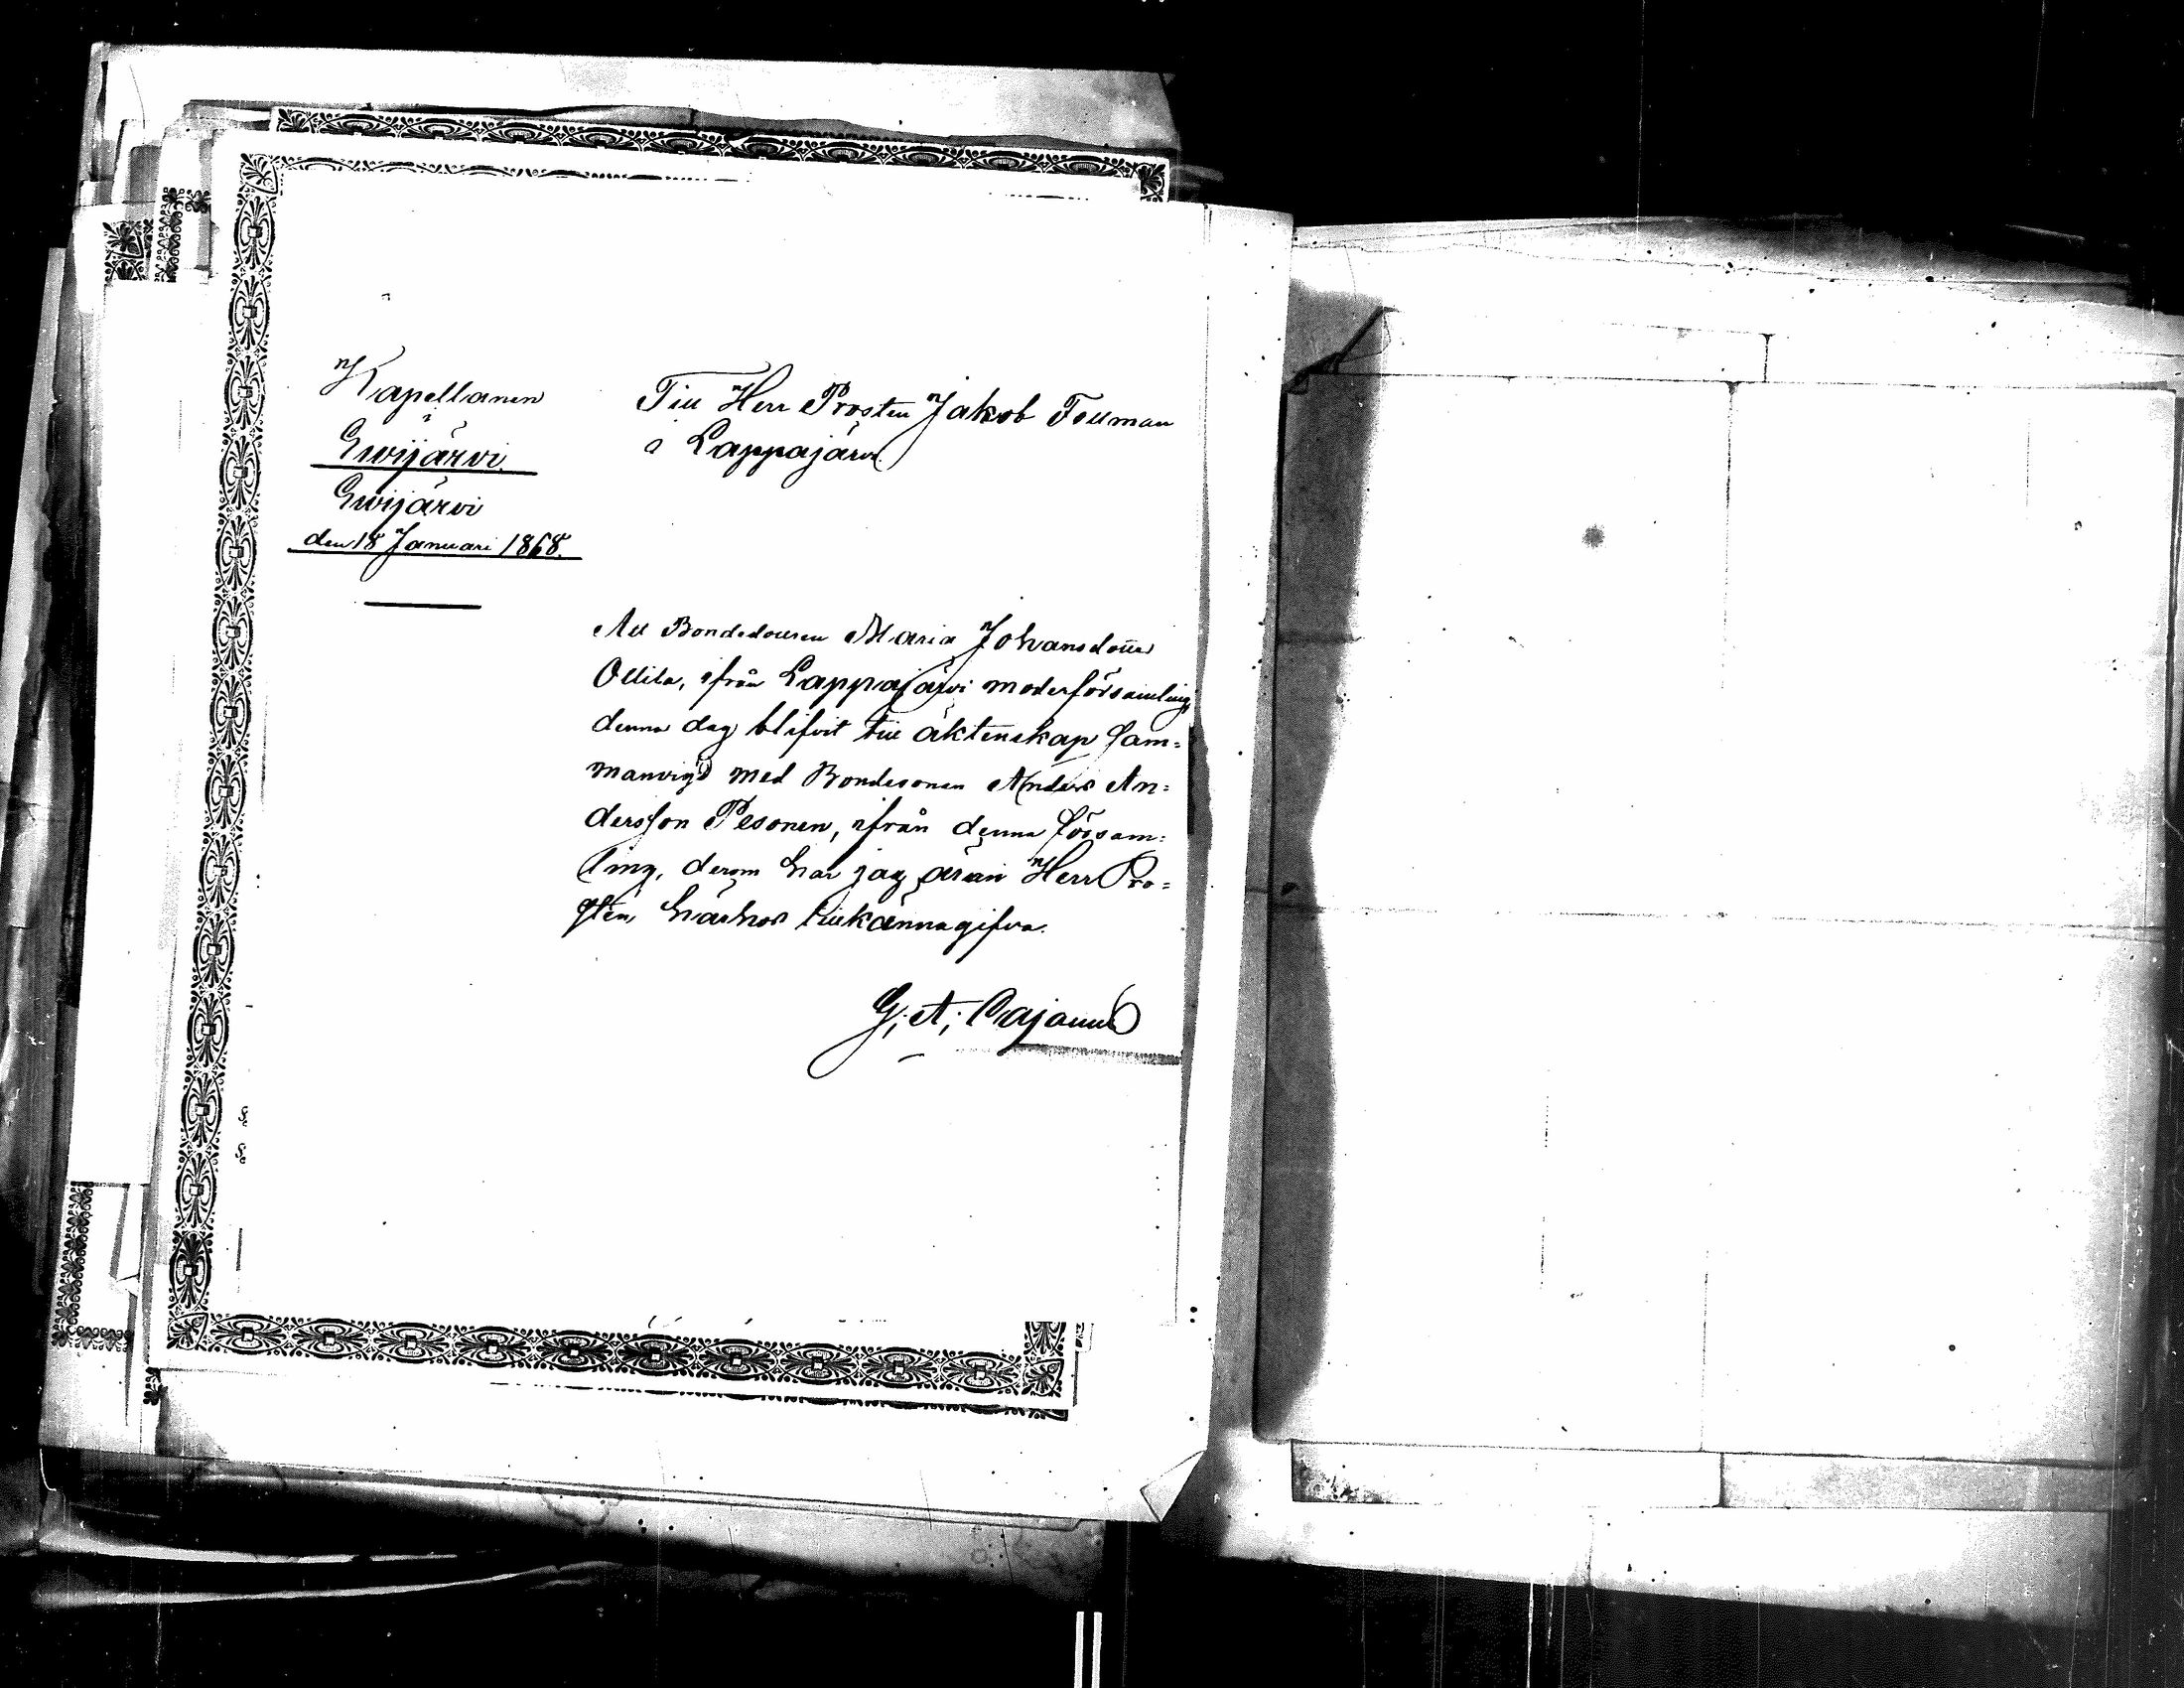 Kapellanen
i
Ewijärvi.
Ewijärvi
den 18 Januari 1868.
Till Herr Prosten Jakob Fellman
i Lappajärvi
Att Bondedottren Maria Johansdotter
Ollila, ifrån Lappajärvi moderförsamling,
denna dag blifvit till äktenskap sam=
manvigd med Bondesonen Anders An=
dersson Pesonen, ifrån denna försam=
ling, derom har jag äran Herr Pro=
sten härhos tillkännagifva.
G. A. Cajanus